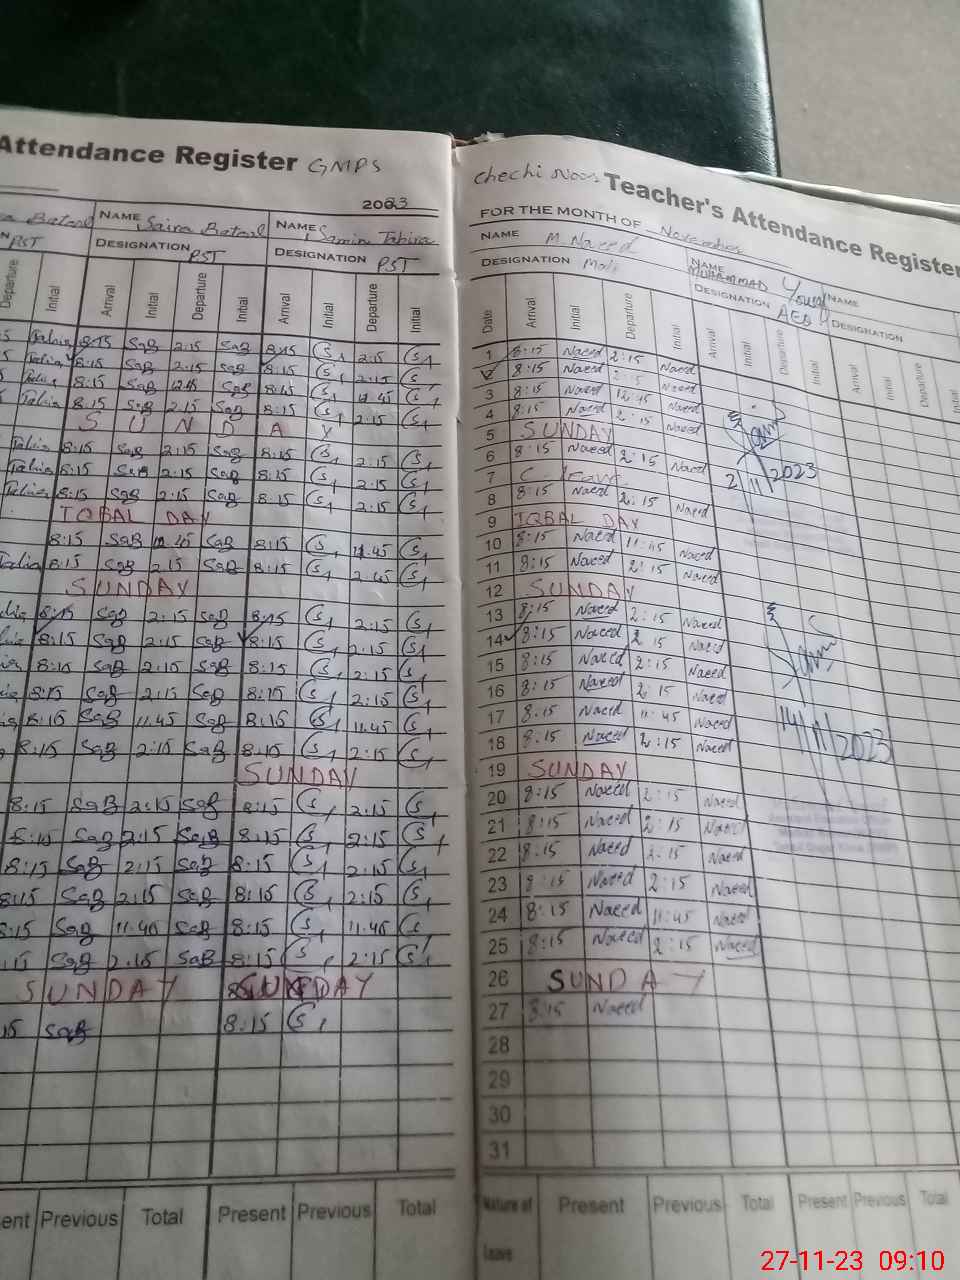 Attendance Register GMPS
2023
NAME Saira Batool NAME Samina Tahira
DESIGNATION PST DESIGNATION PST
Departure Initial Arrival Initial Departure Initial Arrival Initial Departure Initial
8:15 SaB 2:15 SaB 8:15 S 2:15 S
8:15 SaB 2:15 SaB 8:15 S 2:15 S
8:15 SaB 12:45 SaB 8:15 S 12:45 S
8:15 SaB 2:15 SaB 8:15 S 2:15 S
SUNDAY
8:15 SaB 2:15 SaB 8:15 S 2:15 S
8:15 SaB 2:15 SaB 8:15 S 2:15 S
8:15 SaB 2:15 SaB 8:15 S 2:15 S
IQBAL DAY
8:15 SaB 11.45 SaB 8:15 S 11.45 S
8:15 SaB 2:15 SaB 8:15 S 2:15 S
SUNDAY
8:15 SaB 2:15 SaB 8:15 S 2:15 S
8:15 SaB 2:15 SaB 8:15 S 2:15 S
8:15 SaB 2:15 SaB 8:15 S 2:15 S
8:15 SaB 2:15 SaB 8:15 S 2:15 S
8:15 SaB 11.45 SaB 8:15 S 11.45 S
8:15 SaB 2:15 SaB 8:15 S 2:15 S
SUNDAY
8:15 SaB 2:15 SaB 8:15 S 2:15 S
8:15 SaB 2:15 SaB 8:15 S 2:15 S
8:15 SaB 2:15 SaB 8:15 S 2:15 S
8:15 SaB 2:15 SaB 8:15 S 2:15 S
8:15 SaB 11.45 SaB 8:15 S 11.45 S
:15 SaB 2:15 SaB 8:15 S 2:15 S
SUNDAY SUNDAY
15 SaB 8:15 S
Present Previous Total Present Previous Total
Chechi Noor Teacher's Attendance Register
FOR THE MONTH OF November
NAME M. Naeed NAME MUHAMMAD Yousaf NAME
DESIGNATION Mali DESIGNATION AEO DESIGNATION
Date Arrival Initial Departure Initial Arrival Initial Departure Initial Arrival Initial Departure
1 8:15 Naeed 2:15 Naeed
2 8:15 Naeed 2:15 Naeed
3 8:15 Naeed 12:45 Naeed
4 8:15 Naeed 2:15 Naeed
5 SUNDAY
6 8:15 Naeed 2:15 Naeed
7 C-leave
8 8:15 Naeed 2:15 Naeed
2/11/2023
9 IQBAL DAY
10 8:15 Naeed 11:45 Naeed
11 8:15 Naeed 2:15 Naeed
12 SUNDAY
13 8:15 Naeed 2:15 Naeed
14 8:15 Naeed 2:15 Naeed
15 8:15 Naeed 2:15 Naeed
16 8:15 Naeed 2:15 Naeed
17 8:15 Naeed 11:45 Naeed
18 8:15 Naeed 2:15 Naeed
14/11/2023
19 SUNDAY
20 8:15 Naeed 2:15 Naeed
21 8:15 Naeed 2:15 Naeed
22 8:15 Naeed 2:15 Naeed
23 8:15 Naeed 2:15 Naeed
24 8:15 Naeed 11:45 Naeed
25 8:15 Naeed 2:15 Naeed
26 SUNDAY
27 8:15 Naeed
28
29
30
31
Nature of leave Present Previous Total Present Previous Total
27-11-23 09:10